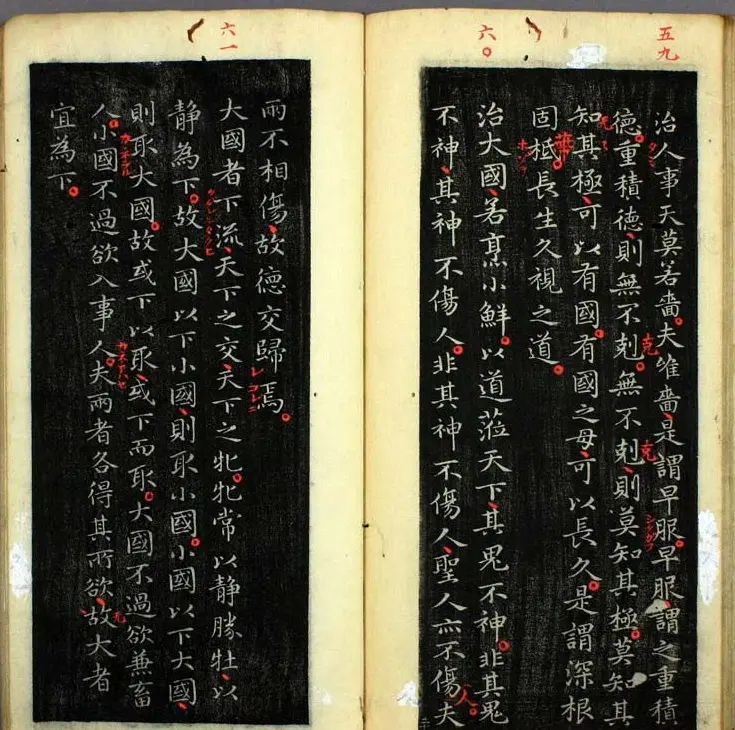 五九
治人事天莫若嗇。夫唯嗇、是謂早服。早服、謂之重積
德。重積德、則無不剋。無不剋、則莫知其極。莫知其
克
克
知其極、可以有國。有國之母、可以長久。是謂深根
固柢。長生久視之道。
六〇
治大國、若烹小鮮。以道莅天下、其鬼不神。非其鬼
不神、其神不傷人。非其神不傷人、聖人亦不傷夫
人。
六一
兩不相傷、故德交歸焉。
大國者下流、天下之交、天下之牝。牝常以静勝牡、以
静為下。故大國以下小國、則取小國。小國以下大國、
則取大國。故或下以取、或下而取。大國不過欲兼畜
人。小國不過欲入事人。夫兩者各得其所欲、故大者
宜為下。